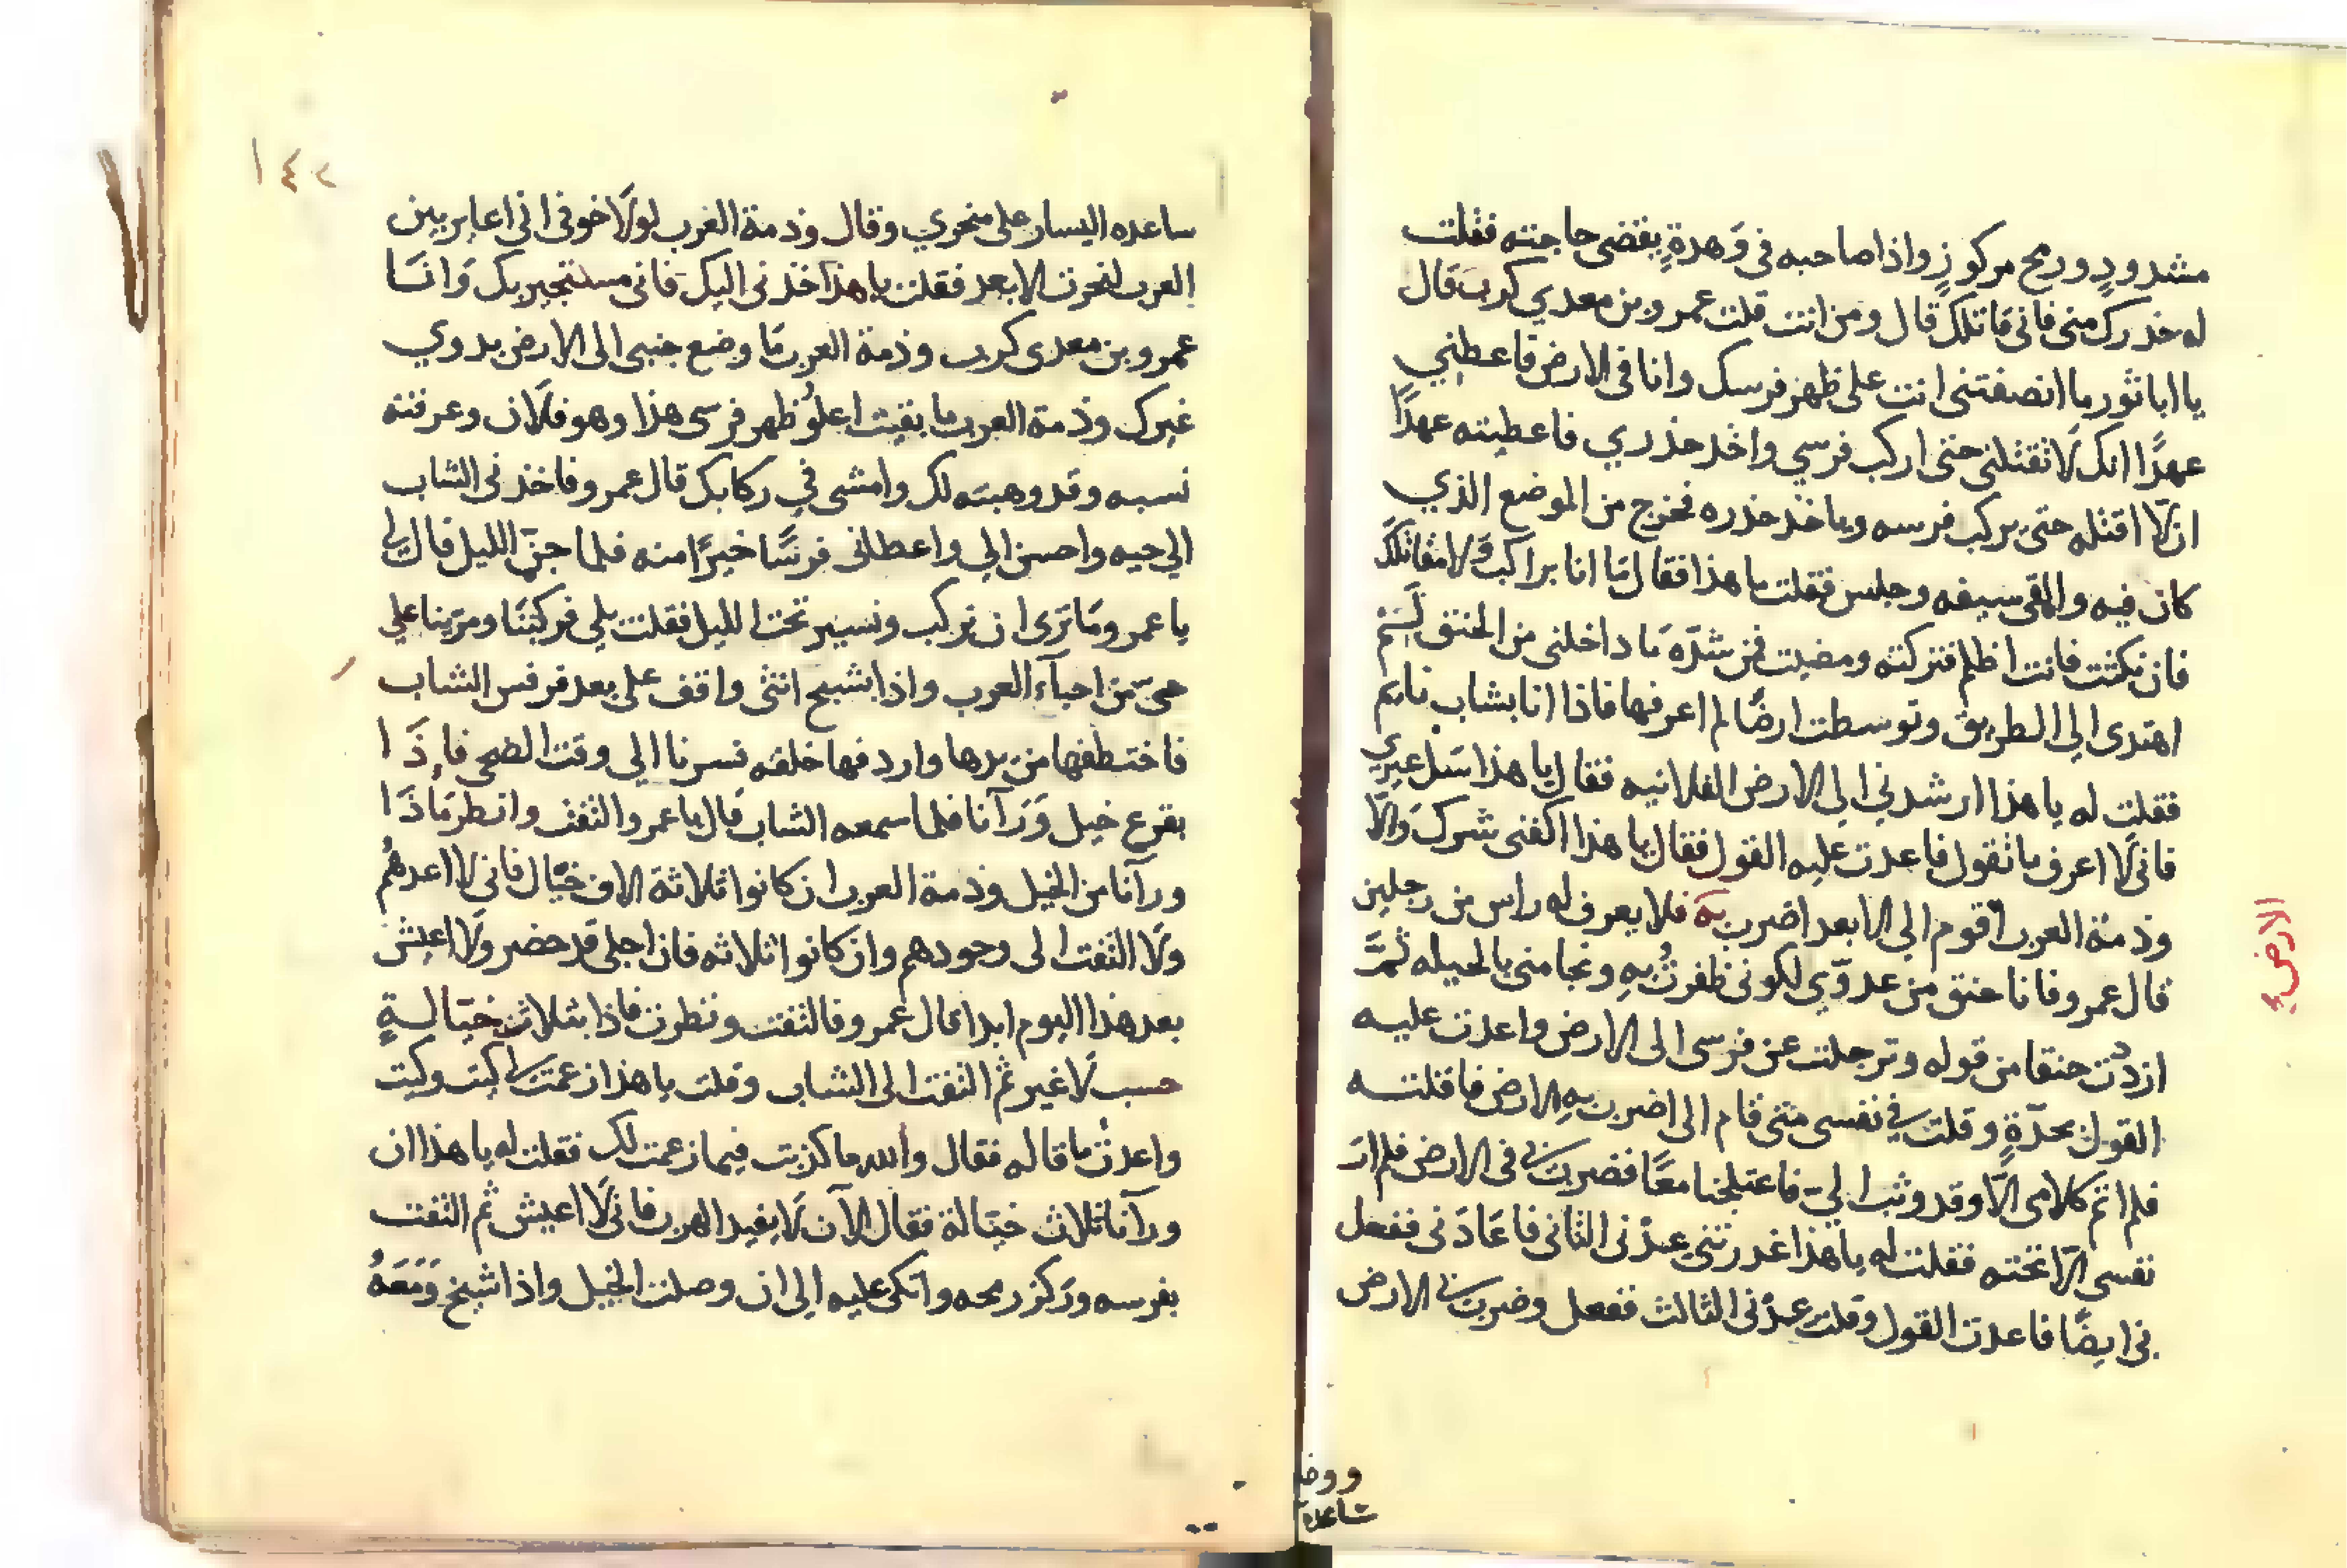 مشدودٍ ورمح مركوزٍ واذا صاحبه في وَهدةٍ يقضى حاجته فقلت
له خذ حذرك منى فانى قاتلك قال ومن انت قلت عمرو بن معدي كرب قال
يا ابا ثور ما انصفتنى انت على ظهر فرسك وانا فى الارض فاعطني
عهدًا انك لا تقتلنى حتى اركب فرسي واخذ حذري فاعطيته عهدًا
ان لا اقتله حتى يركب فرسه وياخذ حذره فخرج من الموضع الذي
كان فيه والقى سيفه وجلس فقلت ما هذا فقال ما انا براكب ولا مقاتلك
فان نكثت فانت اظلم فتركته ومضيت فمن شدّة ما داخلنى من الحنق لم
اهتدى الى الطريق وتوسطت ارضًا لم اعرفها فاذا انا بشاب نايم
فقلت له يا هذا ارشدني الى الارض الفلانيه فقال يا هذا سَل غيري
فانى لا اعرف ما تقول فاعدت عليه القول فقال يا هذا اكفنى شرك والا
وذمة العرب اقوم الى الابعد اضرب به فلا يعرف له راس من رجلين
الارض
قال عمرو فانا حنق من عدوّي لكونى ظفرتُ بهِ ونجا منى بالحيله ثمَّ
ازددت حنقا من قوله وترجلت عن فرسى الى الارض واعدت عليه
القول بحدّةٍ وقلت في نفسى متى قام الى اضرب بهِ الارض فاقتلته
فلما تم كلامى الّا وقد وثب اليّ فاعتلجنا معًا فضرب بى فى الارض فلم ارَ
نفسى الّا تحته فقلت له يا هذا غدرتنى عِدْنى الثانى فاعَادَنى ففعل
بى ايضًا فاعدت القول وقلت عِدْنى الثالث ففعل وضرب بى الارض
ووضع
ساعده
١٤٢
ساعده اليسار على منحري وقال وذمة العرب لولا خوفى انى اعاير بين
العرب لنحرت الابعد فقلت يا هذا خذنى اليك فانى مستجير بك وَانَا
عمرو بن معدى كرب وذمة العرب مَا وضع جنبى الى الارض بدوي
غيرك وذمة العرب ما بقيت اعلُو ظهر فرسى هذا وهو فلان وعرفته
نسبه وقد وهبته لك وامشى في ركابك قال عمرو فاخذنى الشاب
الي حيه واحسن الي واعطانى فرسًا خيرًا منه فلما جنّ الليل قال لى
يا عمرو ومَا تَرى ان نركب ونسير تحت الليل فقلت بلى فركبنَا ومرينا على
حىّ من احيآء العرب واذا بشبح انثى واقف على بعد فرفس الشاب
فاختطفها من يدها واردفها خلفه فسرنا الى وقت الضحى فاِذَا
بقرع خيل وَرَآنا فلما سمعه الشاب قال يا عمرو التفت وانظر مَاذَا
ورآنا من الخيل وذمة العرب ان كانوا ثلاثة الاف خيّال فانى لا اعدهُم
ولَا التفت الى وجودهم وان كانوا ثلاثه فان اجلى قد حضر ولَا اعيش
بعد هذا اليوم ابدا قال عمرو فالتفت ونظرت فاذا بثلاث خيّالةٍ
حسب لَا غير ثم التفت الى الشاب وقلت يا هذا زعمت لى كيت وكيت
واعدتُ ما قاله فقال والله ما كذبت فيما زعمت لك فقلت له يا هذا ان
ورآنا ثلاث خيّالة فقال الآن لَا يفيد الهرب فانى لَا اعيش ثم التفت
بفرسه ورَكز رمحه واتكى عليه الى ان وصلت الخيل واذا شيخ وَمَعَهُ